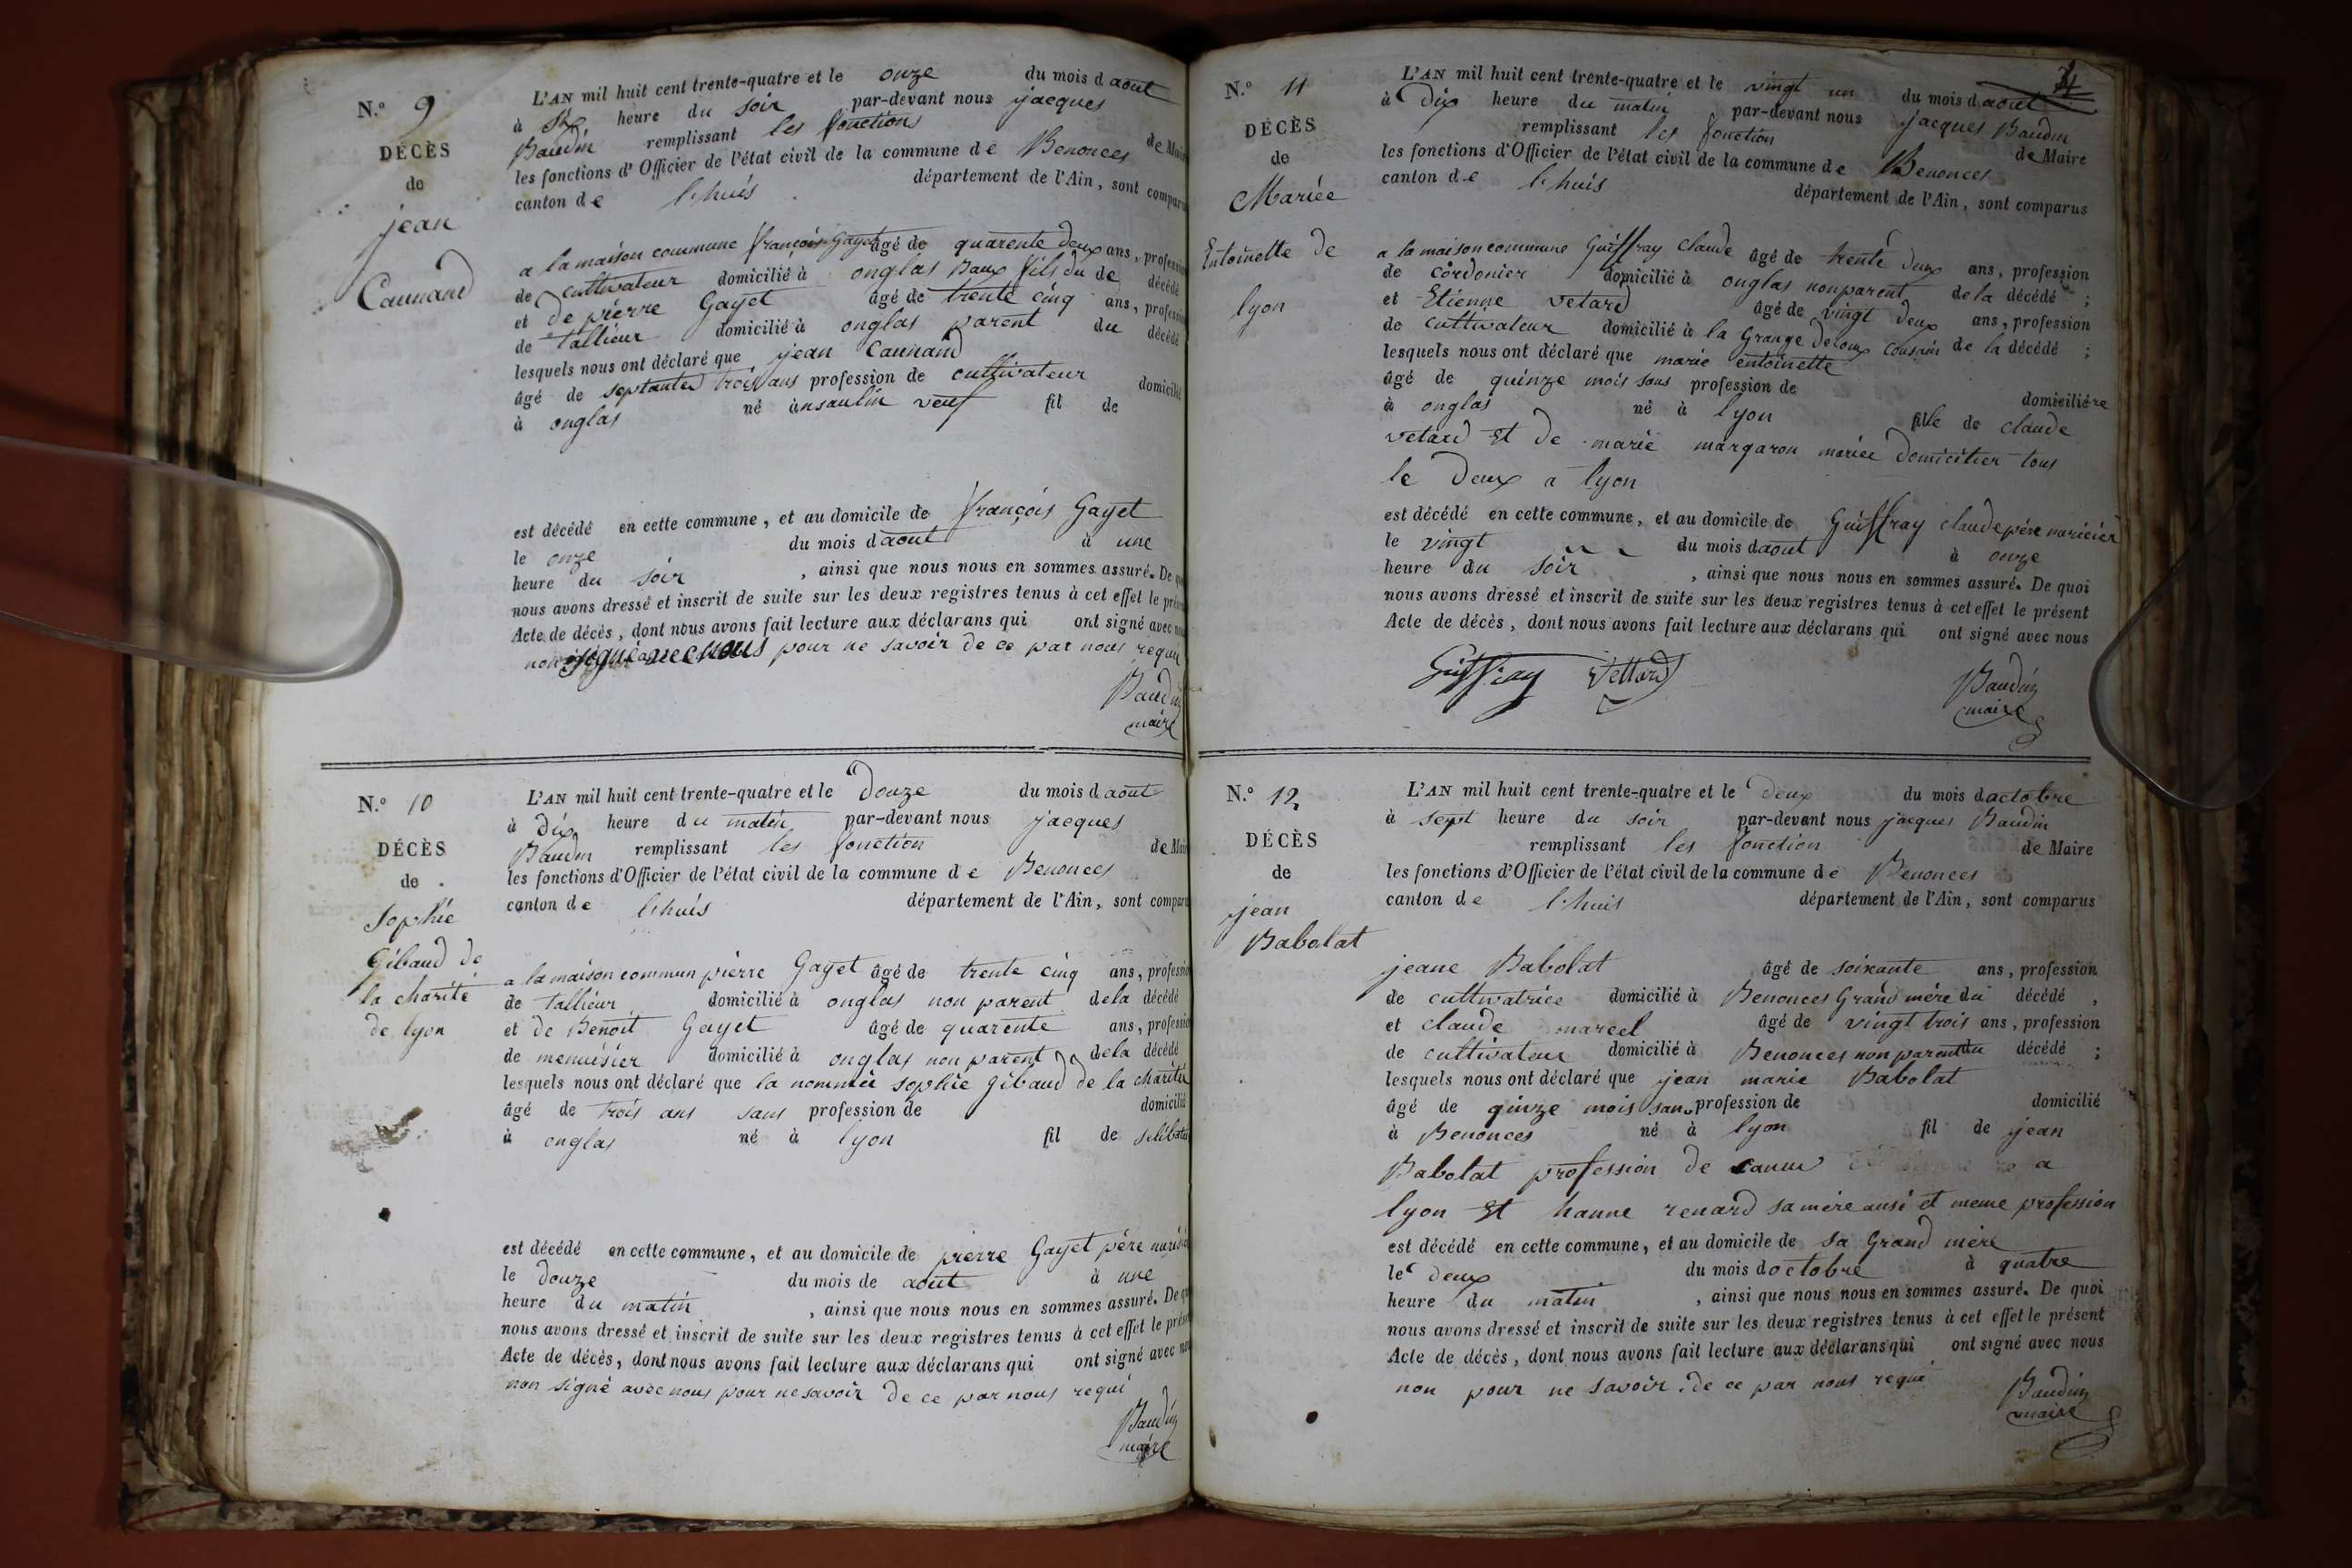 N.º 9
DÉCÈS
de
jean
Caunand
L'AN mil huit cent trente-quatre et le onze du mois d aout
à six heure du soir par-devant nous jacques
Baudin remplissant les fonctions de Mair
les fonctions d'Officier de l'état civil de la commune de Benonces
canton de l'huis département de l'Ain, sont comparu
a la maison commune françois Gayet âgé de quarente deux ans, professi
de cultivateur domicilié à onglas Baux fils du de décédé
et de piérre Gayet âgé de trente cinq ans, professi
de tallieur domicilié à onglas parent du décédé
lesquels nous ont déclaré que jean Caunand
âgé de septante trois ans profession de cultivateur domicilié
à onglas né à nsaulin veuf fil de
est décédé en cette commune, et au domicile de françois Gayet
le onze du mois d aout à une
heure du soir, ainsi que nous nous en sommes assuré. De qu
nous avons dressé et inscrit de suite sur les deux registres tenus à cet effet le prés
Acte de décès, dont nous avons fait lecture aux déclarans qui ont signé avec no
non signé avec nous pour ne savoir de ce par nous requi
Baudin
maire
N.º 10
DÉCÈS
de
Sophie
Gibaud de
la charité
de lyon
L'AN mil huit cent trente-quatre et le Douze du mois d aout
à dix heure du matin par-devant nous jacques
Baudin remplissant les fonction de Mair
les fonctions d'Officier de l'état civil de la commune de Benonces
canton de l'huis département de l'Ain, sont comparu
a la maison commun pierre Gayet âgé de trente cinq ans, professio
de tallieur domicilié à onglas non parent dela décédé
et de Benoit Gayet âgé de quarente ans, professio
de menuisier domicilié à onglas non parent dela décédé
lesquels nous ont déclaré que la nommée sophie gibaud de la charité
âgé de trois ans sans profession de domicilié
à onglas né à lyon fil de selibatai
est décédé en cette commune, et au domicile de pierre Gayet père
le douze du mois de aout à une
heure du matin, ainsi que nous nous en sommes assuré. De qu
nous avons dressé et inscrit de suite sur les deux registres tenus à cet effet le prése
Acte de décès, dont nous avons fait lecture aux déclarans qui ont signé avec no
non signé avec nous pour ne savoir de ce par nous requi
Baudin
maire
N.º 11
DÉCÈS
de
Mariée
Entoinette de
lyon
L'AN mil huit cent trente-quatre et le vingt un du mois d aout
à Dix heure du matin par-devant nous jacques Baudin
remplissant les fonction de Maire
les fonctions d'Officier de l'état civil de la commune de Benonces
canton de l'huis département de l'Ain, sont comparus
a la maison commune Guiffray claude âgé de trente deux ans, profession
de cordonier domicilié à onglas nonparent de la décédé ;
et Etienne vetard âgé de vingt deux ans, profession
de cultivateur domicilié à la Grange Deloux Cousain de la décédé ;
lesquels nous ont déclaré que marie entoinette
âgé de quinze mois sans profession de domiciliére
à onglas né à lyon fille de claude
vetard Et de marie margaron mariée domicilier tous
le Deux a lyon
est décédé en cette commune, et au domicile de Guiffray claude père
le vingt du mois d aout à onze
heure du soir, ainsi que nous nous en sommes assuré. De quoi
nous avons dressé et inscrit de suite sur les deux registres tenus à cet effet le présent
Acte de décès, dont nous avons fait lecture aux déclarans qui ont signé avec nous
Guiffray Vettard
Baudin
maire
N.º 12
DÉCÈS
de
jean
Babolat
L'AN mil huit cent trente-quatre et le Deux du mois d actobre
à sept heure du soir par-devant nous jacques Baudin
remplissant les fonction de Maire
les fonctions d'Officier de l'état civil de la commune de Benonces
canton de l'huis département de l'Ain, sont comparus
jeane Babolat âgé de soixante ans, profession
de cultivatrice domicilié à Benonces Grand mére du décédé ,
et claude marcel âgé de vingt trois ans, profession
de cultivateur domicilié à Benonces non parent du décédé ;
lesquels nous ont déclaré que jean marie Babolat
âgé de qinze mois sans profession de domicilié
à Benonces né à lyon fil de jean
Babolat profession de a
lyon Et hanne renard sa mére ausi et meme profession
est décédé en cette commune, et au domicile de sa Grand mére
le deux du mois d octobre à quatre
heure du matin, ainsi que nous nous en sommes assuré. De quoi
nous avons dressé et inscrit de suite sur les deux registres tenus à cet effet le présent
Acte de décès, dont nous avons fait lecture aux déclarans qui ont signé avec nous
non pour ne savoir de ce par nous requi
Baudin
maire